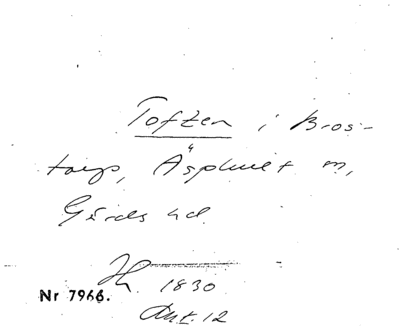 Toften i Bros-
torp, Äsphult m,
Gärds hd.
1830
Nr 7966.
Akt. 12